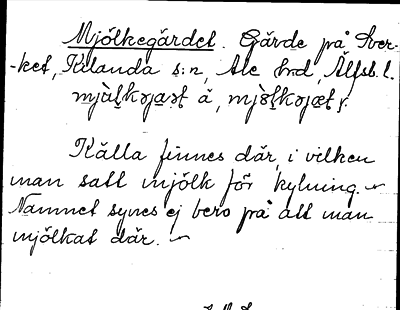 Mjölkegärdet. Gärde på Sver-
-ket, Kilanda s:n, Ale hrd, Älfsb. l.
å,
Källa finnes där, i vilken
man satt mjölk för kylning.
Namnet synes ej bero på att man
mjölkat där.